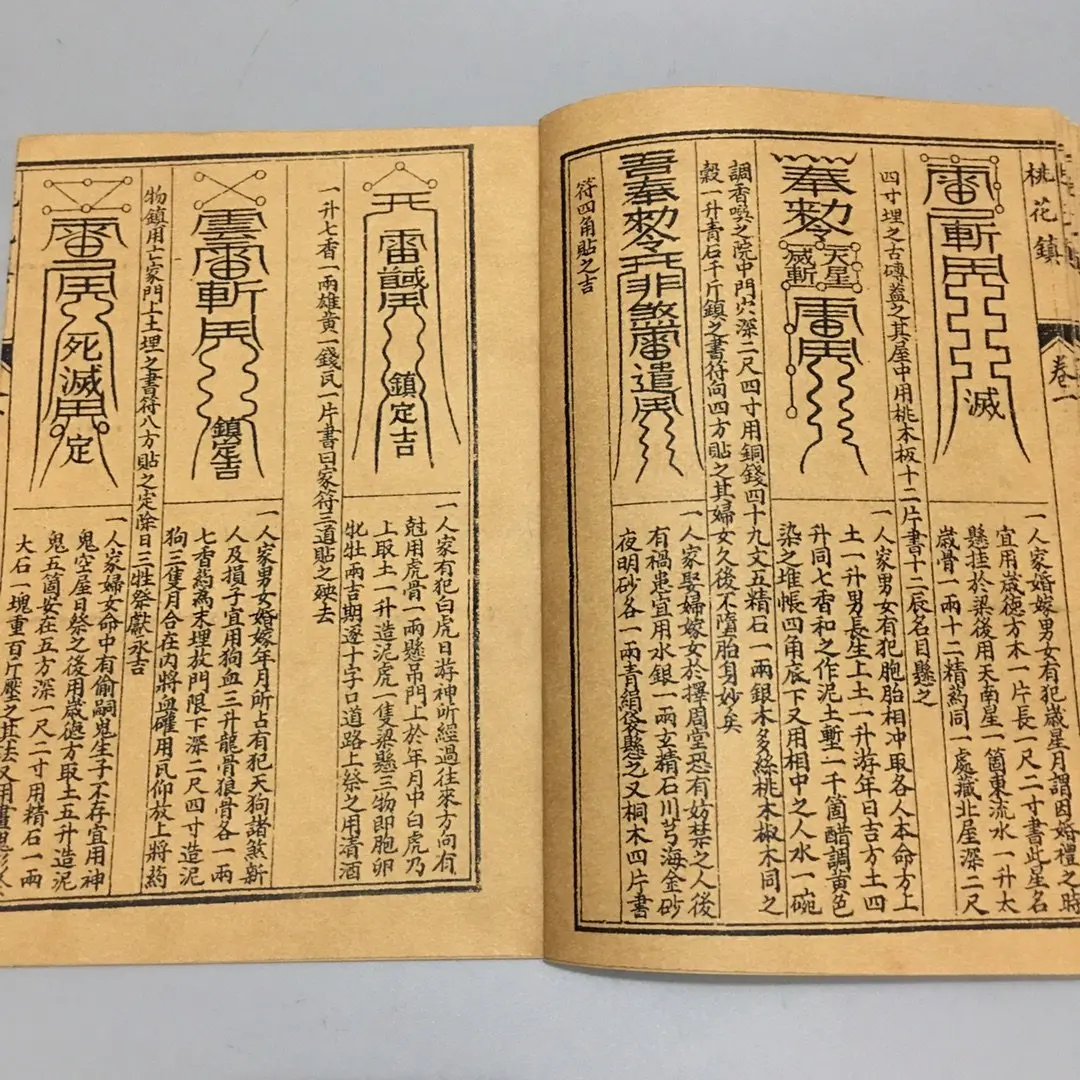 桃花鎮
卷一
滅
一人家婚嫁男女有犯歲星月謂因婚禮之時
宜用歲德方木一片長一尺二寸書此星名
懸挂於梁後用天南星一箇東流水一升太
歲骨一兩十二精葯同一處藏北屋深二尺
四寸埋之古磚蓋之其屋中用桃木板十二片書十二辰名目懸之
奉勅令
天星
滅斬
一人家男女有犯胞胎相冲取各人本命方上
土一升男長生上土一升游年日吉方土四
升同七香和之作泥土塹一千箇醋調黃色
染之堆帳四角底下又用相中之人水一碗
調香噀之院中門穴深二尺四寸用銅錢四十九文五精石一兩銀木多絲桃木椒木同之
穀一升青石千斤鎮之書符向四方貼之其婦女久後不墮胎身妙矣
吾奉勅令
遣
一人家娶婦嫁女於擇周堂恐有妨禁之人後
有禍患宜用水銀一兩玄精石川芎海金砂
夜明砂各一兩青絹袋懸之又桐木四片書
符四角貼之吉
鎮定吉
一人家有犯白虎日游神所經過往來方向有
尅用虎骨一兩懸吊門上於年月中白虎乃
上取土一升造泥虎一隻梁懸三物即胞卵
牝牡兩吉期逐十字口道路上祭之用清酒
一升七香一兩雄黃一錢瓦一片書曰家符三道貼之殃去
鎮定吉
一人家男女婚嫁年月所占有犯天狗諸煞新
人及損子宜用狗血三升龍骨狼骨各一兩
七香葯為末埋放門限下深二尺四寸造泥
狗三隻月合在內將血罐用瓦仰放上將葯
物鎮用亡家門上土埋之書符八方貼之定除日三牲祭獻永吉
死滅
定
一人家婦女命中有偷嗣鬼生子不存宜用神
鬼空屋日祭之後用歲德方取土五升造泥
鬼五箇安在五方深一尺二寸用精石一兩
大石一塊重百斤壓之其法又用畫鬼形